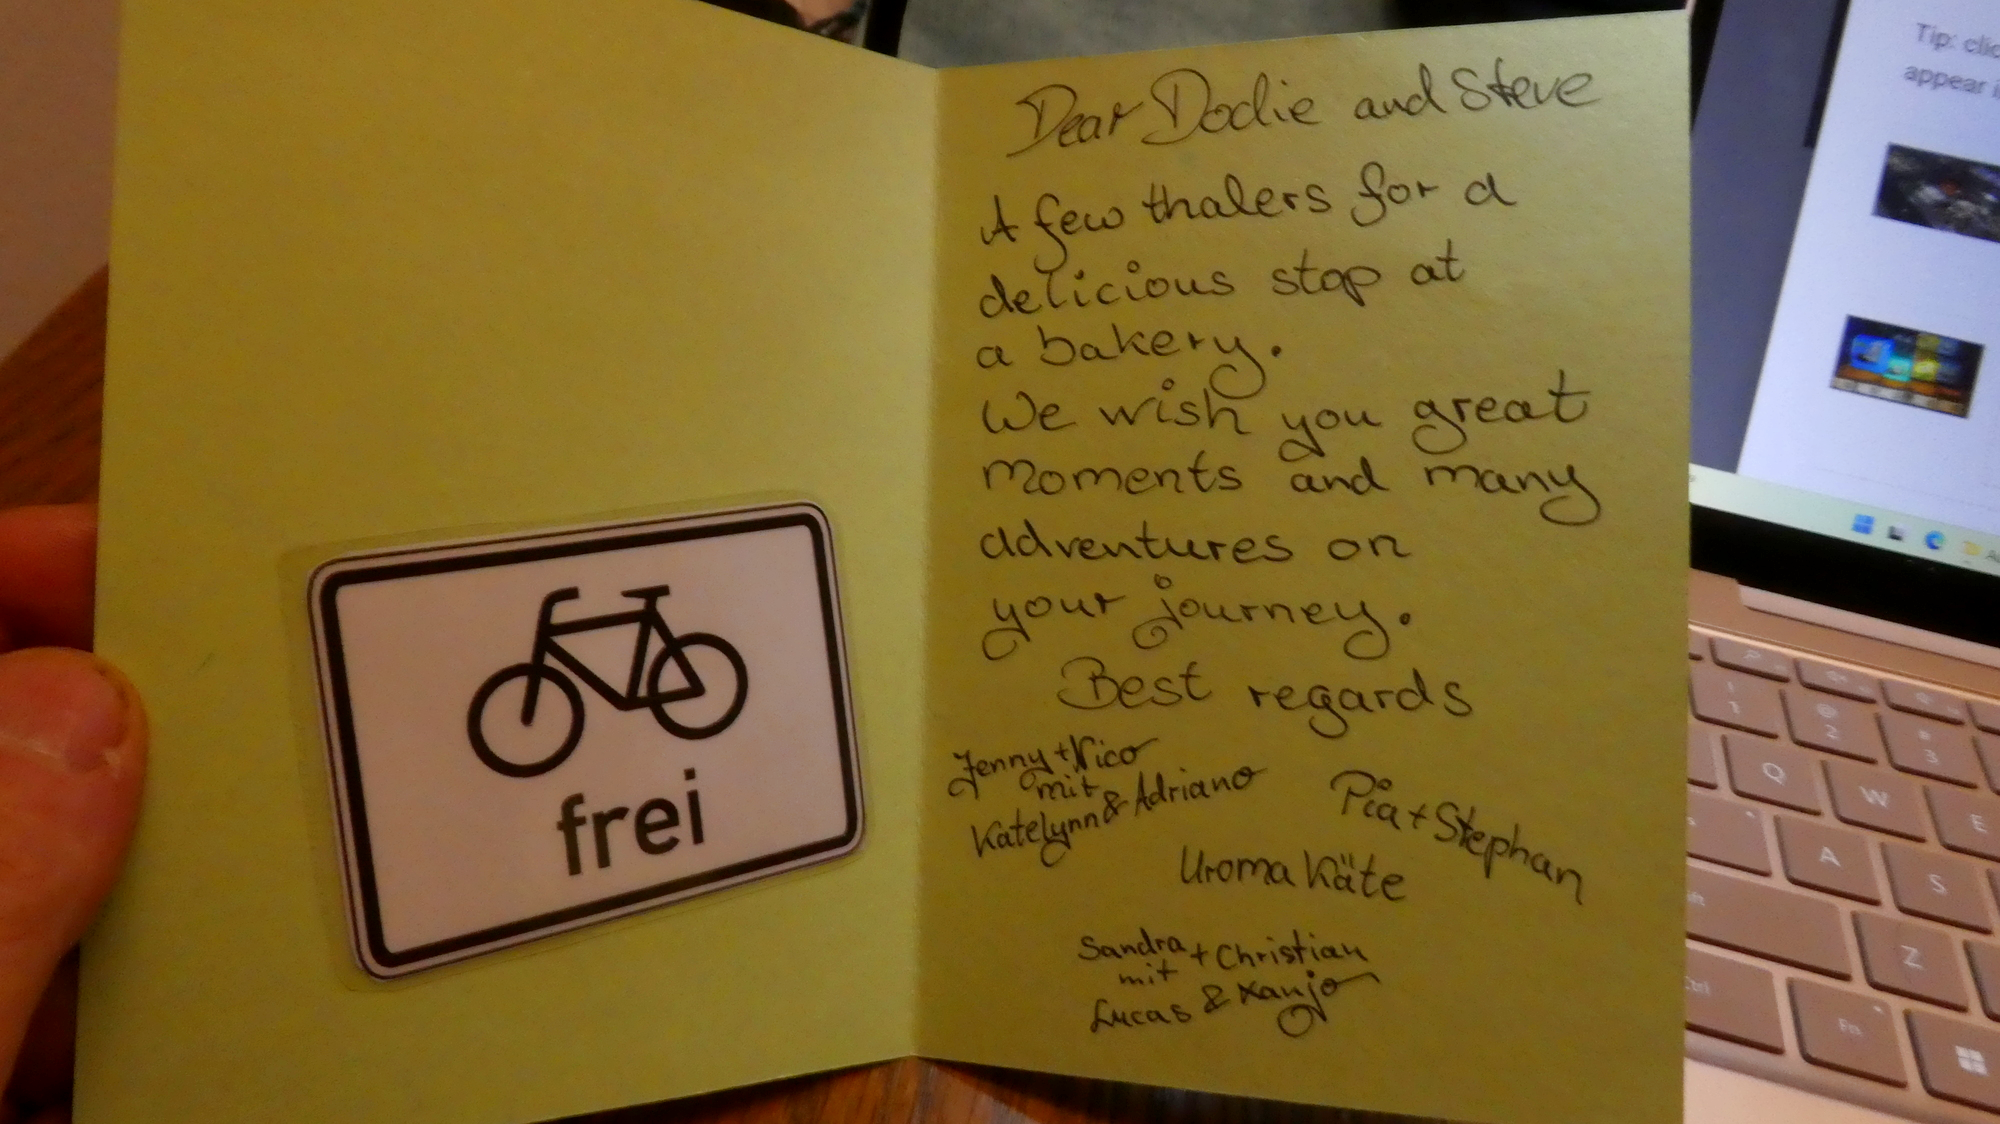 frei
Dear Dodie and Steve
A few thalers for a
delicious stop at
a bakery.
We wish you great
moments and many
adventures on
your journey.
Best regards
Jenny + Nico
mit
Katelynn & Adriano
Pia + Stephan
Uroma Käte
Sandra + Christian
mit
Lucas & Xanjo
Tip: clic
appear i
1
2
3
Q
W
E
A
S
Z
Fn